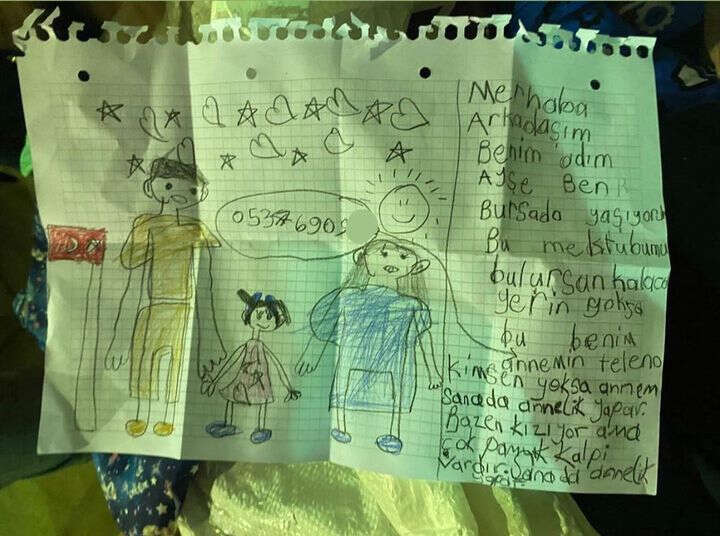 Merhaba
Arkadaşım
Benim adım
Ayşe Ben
Bursada
Bu mektubumu
bulursan
yerin yoksa
bu benim
annemin
kimsen yoksa annem
sanada annelik yapar.
Bazen kızıyor ama
çok pamuk kalpi
vardır. Sanada annelik